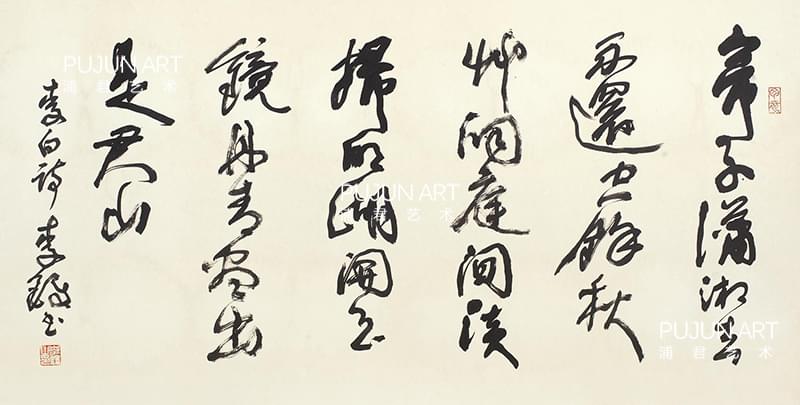 帝子瀟湘去
不還空餘秋
艸洞庭間淡
掃明湖開玉
鏡丹青畫出
是君山
李白詩 李鐸书
PUJUN ART
浦君艺术
PUJUN ART
浦君艺术
PUJUN ART
浦君艺术